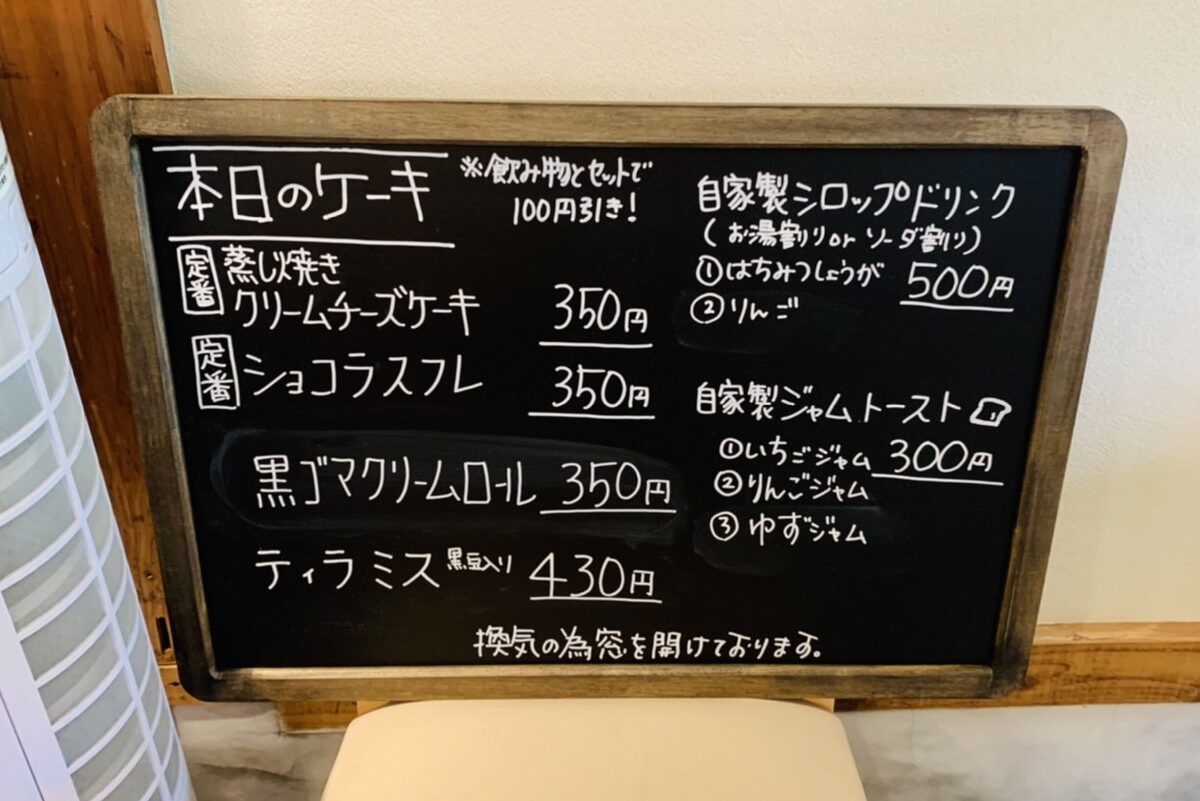 本日のケーキ
※飲み物とセットで
100円引き!
定番 蒸し焼き
クリームチーズケーキ 350円
定番 ショコラスフレ 350円
黒ゴマクリームロール 350円
ティラミス 黒豆入り 430円
自家製シロップドリンク
(お湯割りorソーダ割り)
①はちみつしょうが 500円
②りんご
自家製ジャムトースト
①いちごジャム 300円
②りんごジャム
③ゆずジャム
換気の為窓を開けております。